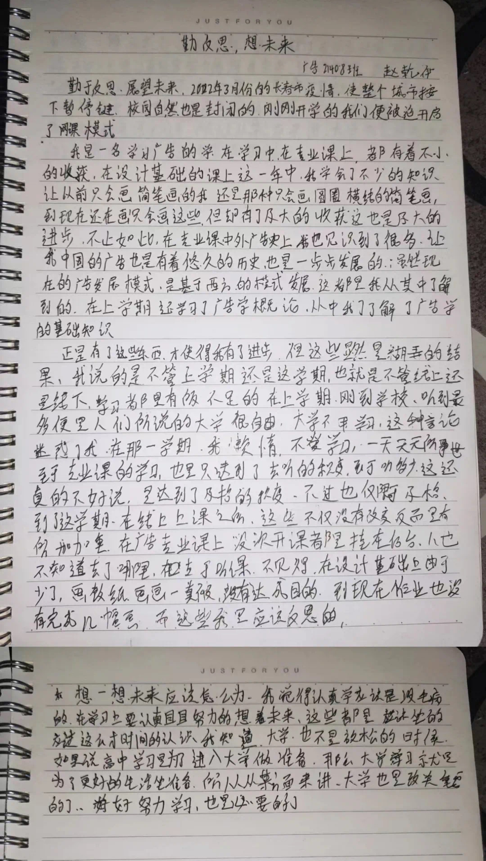 JUST FOR YOU
勤反思,想未来
广告21083班 赵乾
勤于反思、展望未来、2022年3月份的长春市疫情,使整个城市按
下暂停键.校园自然也是封闭的.刚刚开学的我们便被迫开启
了网课模式
我是一名学习广告的学生在学习中,在专业课上,都有着不小
的收获.在设计基础的课上这一年中,我学会了不少的知识
让从前只会画简笔画的我 还是那种只会画圆圈 横线的简笔画,
到现在还在画只会画这些,但却有了及大的收获这也是及大的
进步.不止如此,在专业课中外广告史上 我也见识到了很多.让
我中国的广告也是有着悠久的历史,也是一步步发展的.虽然现
在的广告发展模式,是基于西方的模式发展.这都是我从其中了解
到的.在上学期还学习了广告学概论,从中我了解了广告学
的基础知识
正是有了这些东西,才使得我有了进步.但这些显然是 的结
果、我说的是不管上学期还是这学期,也就是不管线上还
是线下,学习都是有所不足的在上学期.刚到学校、听到最
多便是人们所说的大学很自由.大学不用学习,这种言论
迷惑了我.在那一学期.我懒惰,不爱学习,一天天无所事事
至于专业课的学习,也只达到了去听的程度,至于听多少,这还
真的不好说,是达到了及格的程度、不过也仅 及格.
到了这学期.在线上上课之余,这些不仅没有改变反而是有
所加重.在广告专业课上没次开课都是挂在后台.人也
不知道去了哪里,
少了,画 没有达成目的.到现在作业也没
有完成几幅画.而这些我是应该反思的,
JUST FOR YOU
想一想未来应该怎么为.我觉得认真学应该是没毛病
的.在学习上要认真且努力的想着未来,这些都是
这么才时间的认识.我知道,大学,也不是放松的时候.
如果说高中学习是为了进入大学做准备.那么大学学习就是
为了更好的生活准备.所以从 方面来讲,大学也是至关重要
的了..好好努力学习,也是必要的